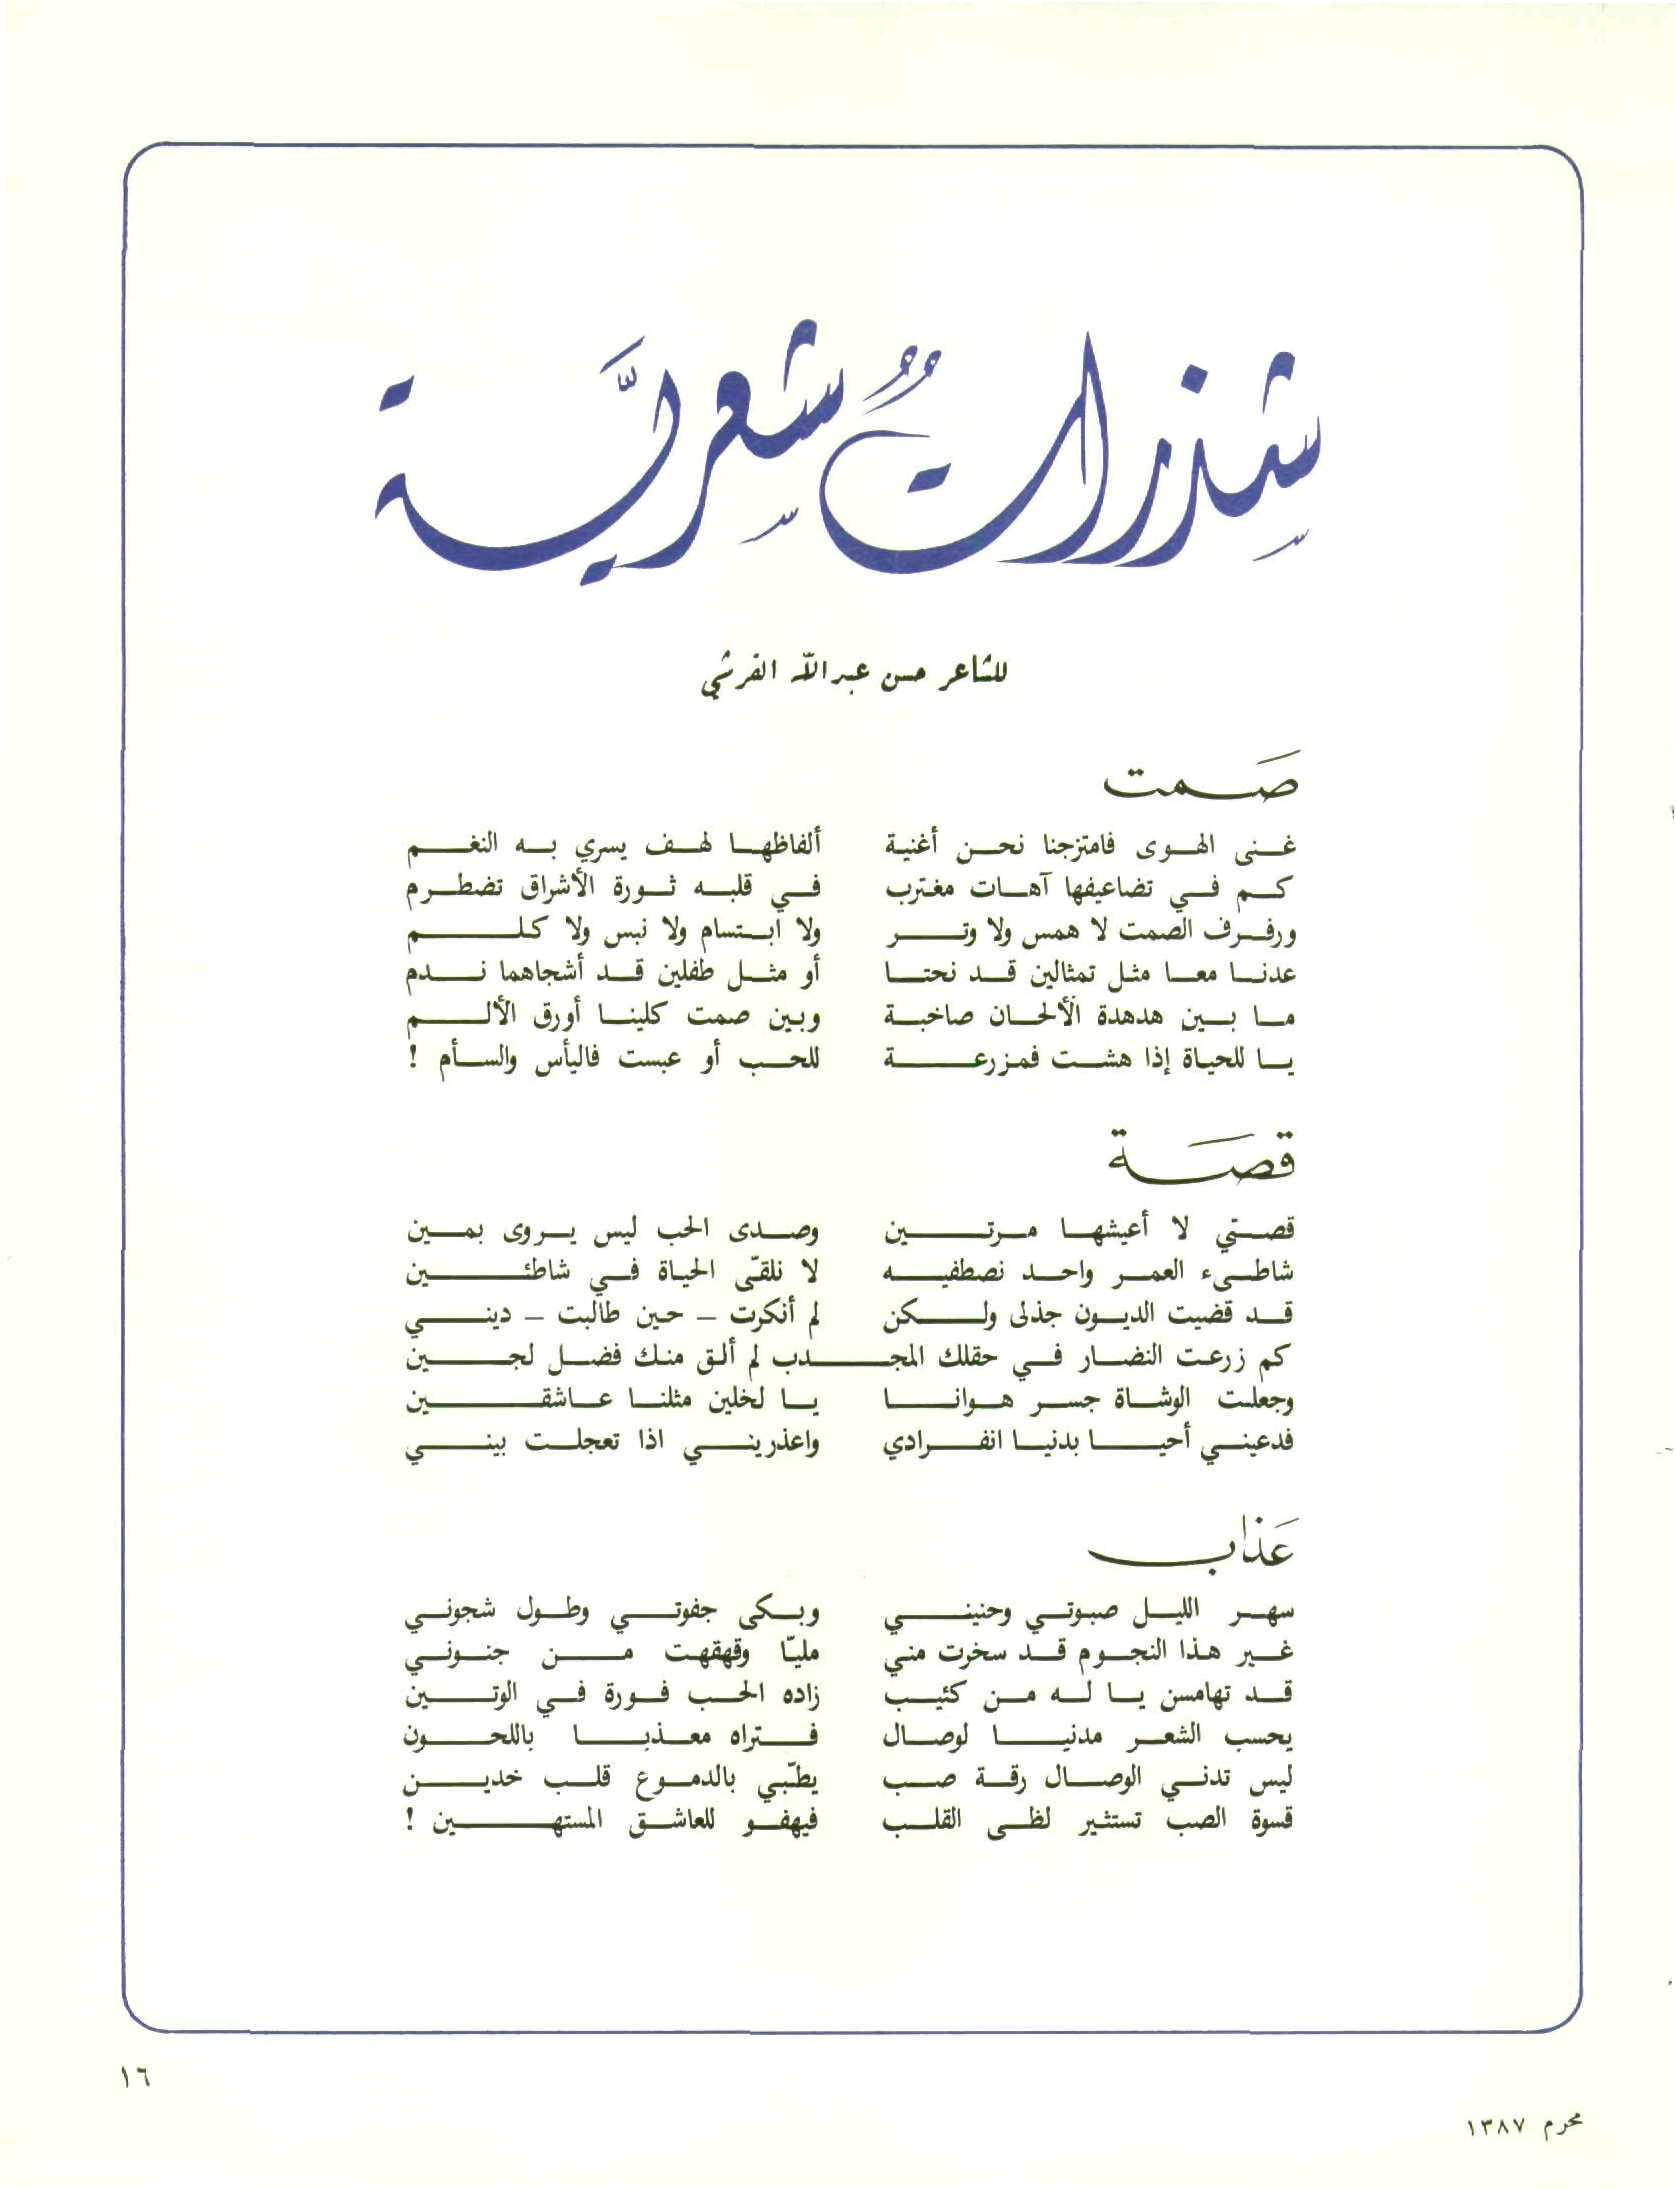 شذراتٌ شعريَّة
للشاعر حسن عبدالله القرشي
صَمت
غنى الهوى فامتزجنا نحن أغنية ألفاظها لهف يسري به النغم
كم في تضاعيفها آهات مغترب في قلبه ثورة الأشراق تضطرم
ورفرف الصمت لا همس ولا وتر ولا ابتسام ولا نبس ولا كلم
عدنا معا مثل تمثالين قد نحتا أو مثل طفلين قد أشجاهما ندم
ما بين هدهدة الألحان صاخبة وبين صمت كلينا أورق الألم
يا للحياة إذا هشت فمزرعة للحب أو عبست فاليأس والسأم !
قصَة
قصتي لا أعيشها مرتين وصدى الحب ليس يروى بمين
شاطىء العمر واحد نصطفيه لا نلقّى الحياة في شاطئين
قد قضيت الديون جذلى ولكن لم أنكرت – حين طالبت – ديني
كم زرعت النضار في حقلك المجدب لم ألق منك فضل لجين
وجعلت الوشاة جسر هوانا يا لخلين مثلنا عاشقين
فدعيني أحيا بدنيا انفرادي واعذريني اذا تعجلت بيني
عَذاب
سهر الليل صبوتي وحنيني وبكى جفوتي وطول شجوني
غير هذا النجوم قد سخرت مني مليّا وقهقهت من جنوني
قد تهامسن يا له من كئيب زاده الحب فورة في الوتين
يحسب الشعر مدنيا لوصال فتراه معذبا باللحون
ليس تدني الوصال رقة صب يطّبي بالدموع قلب خدين
قسوة الصب تستثير لظى القلب فيهفو للعاشق المستهين !
١٦
محرم ١٣٨٧